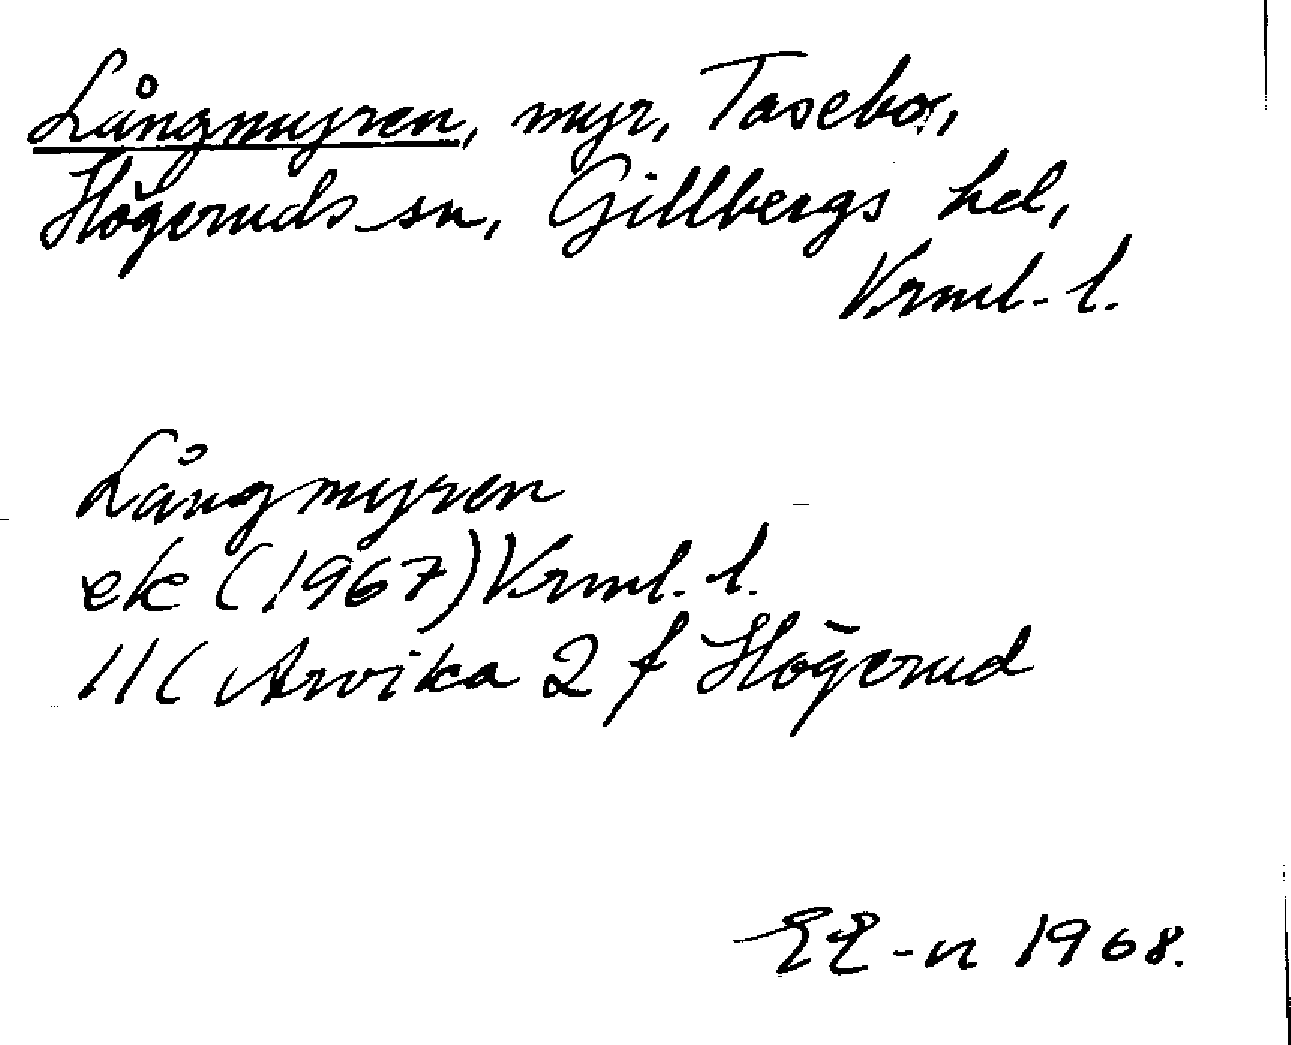 Långmyren, myr, Tasebo,
Högeruds sn, Gillbergs hd,
Vrml. l.
Långmyren
ek (1967) Vrml. l.
11C Arvika 2 f Högerud
EE-n 1968.